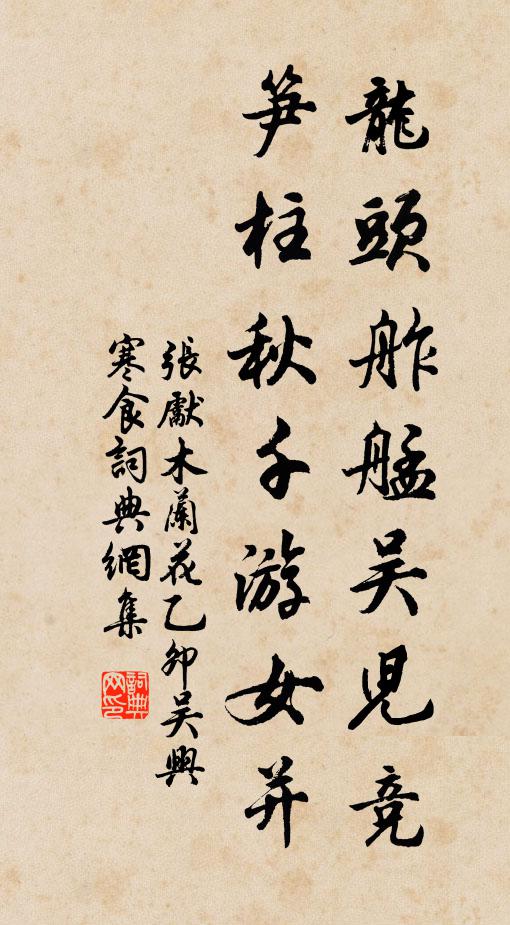 龍頭舴艋吳兒競
笋柱秋千游女并
張獻木蘭花乙卯吳興
寒食詞典網集
詞典網印